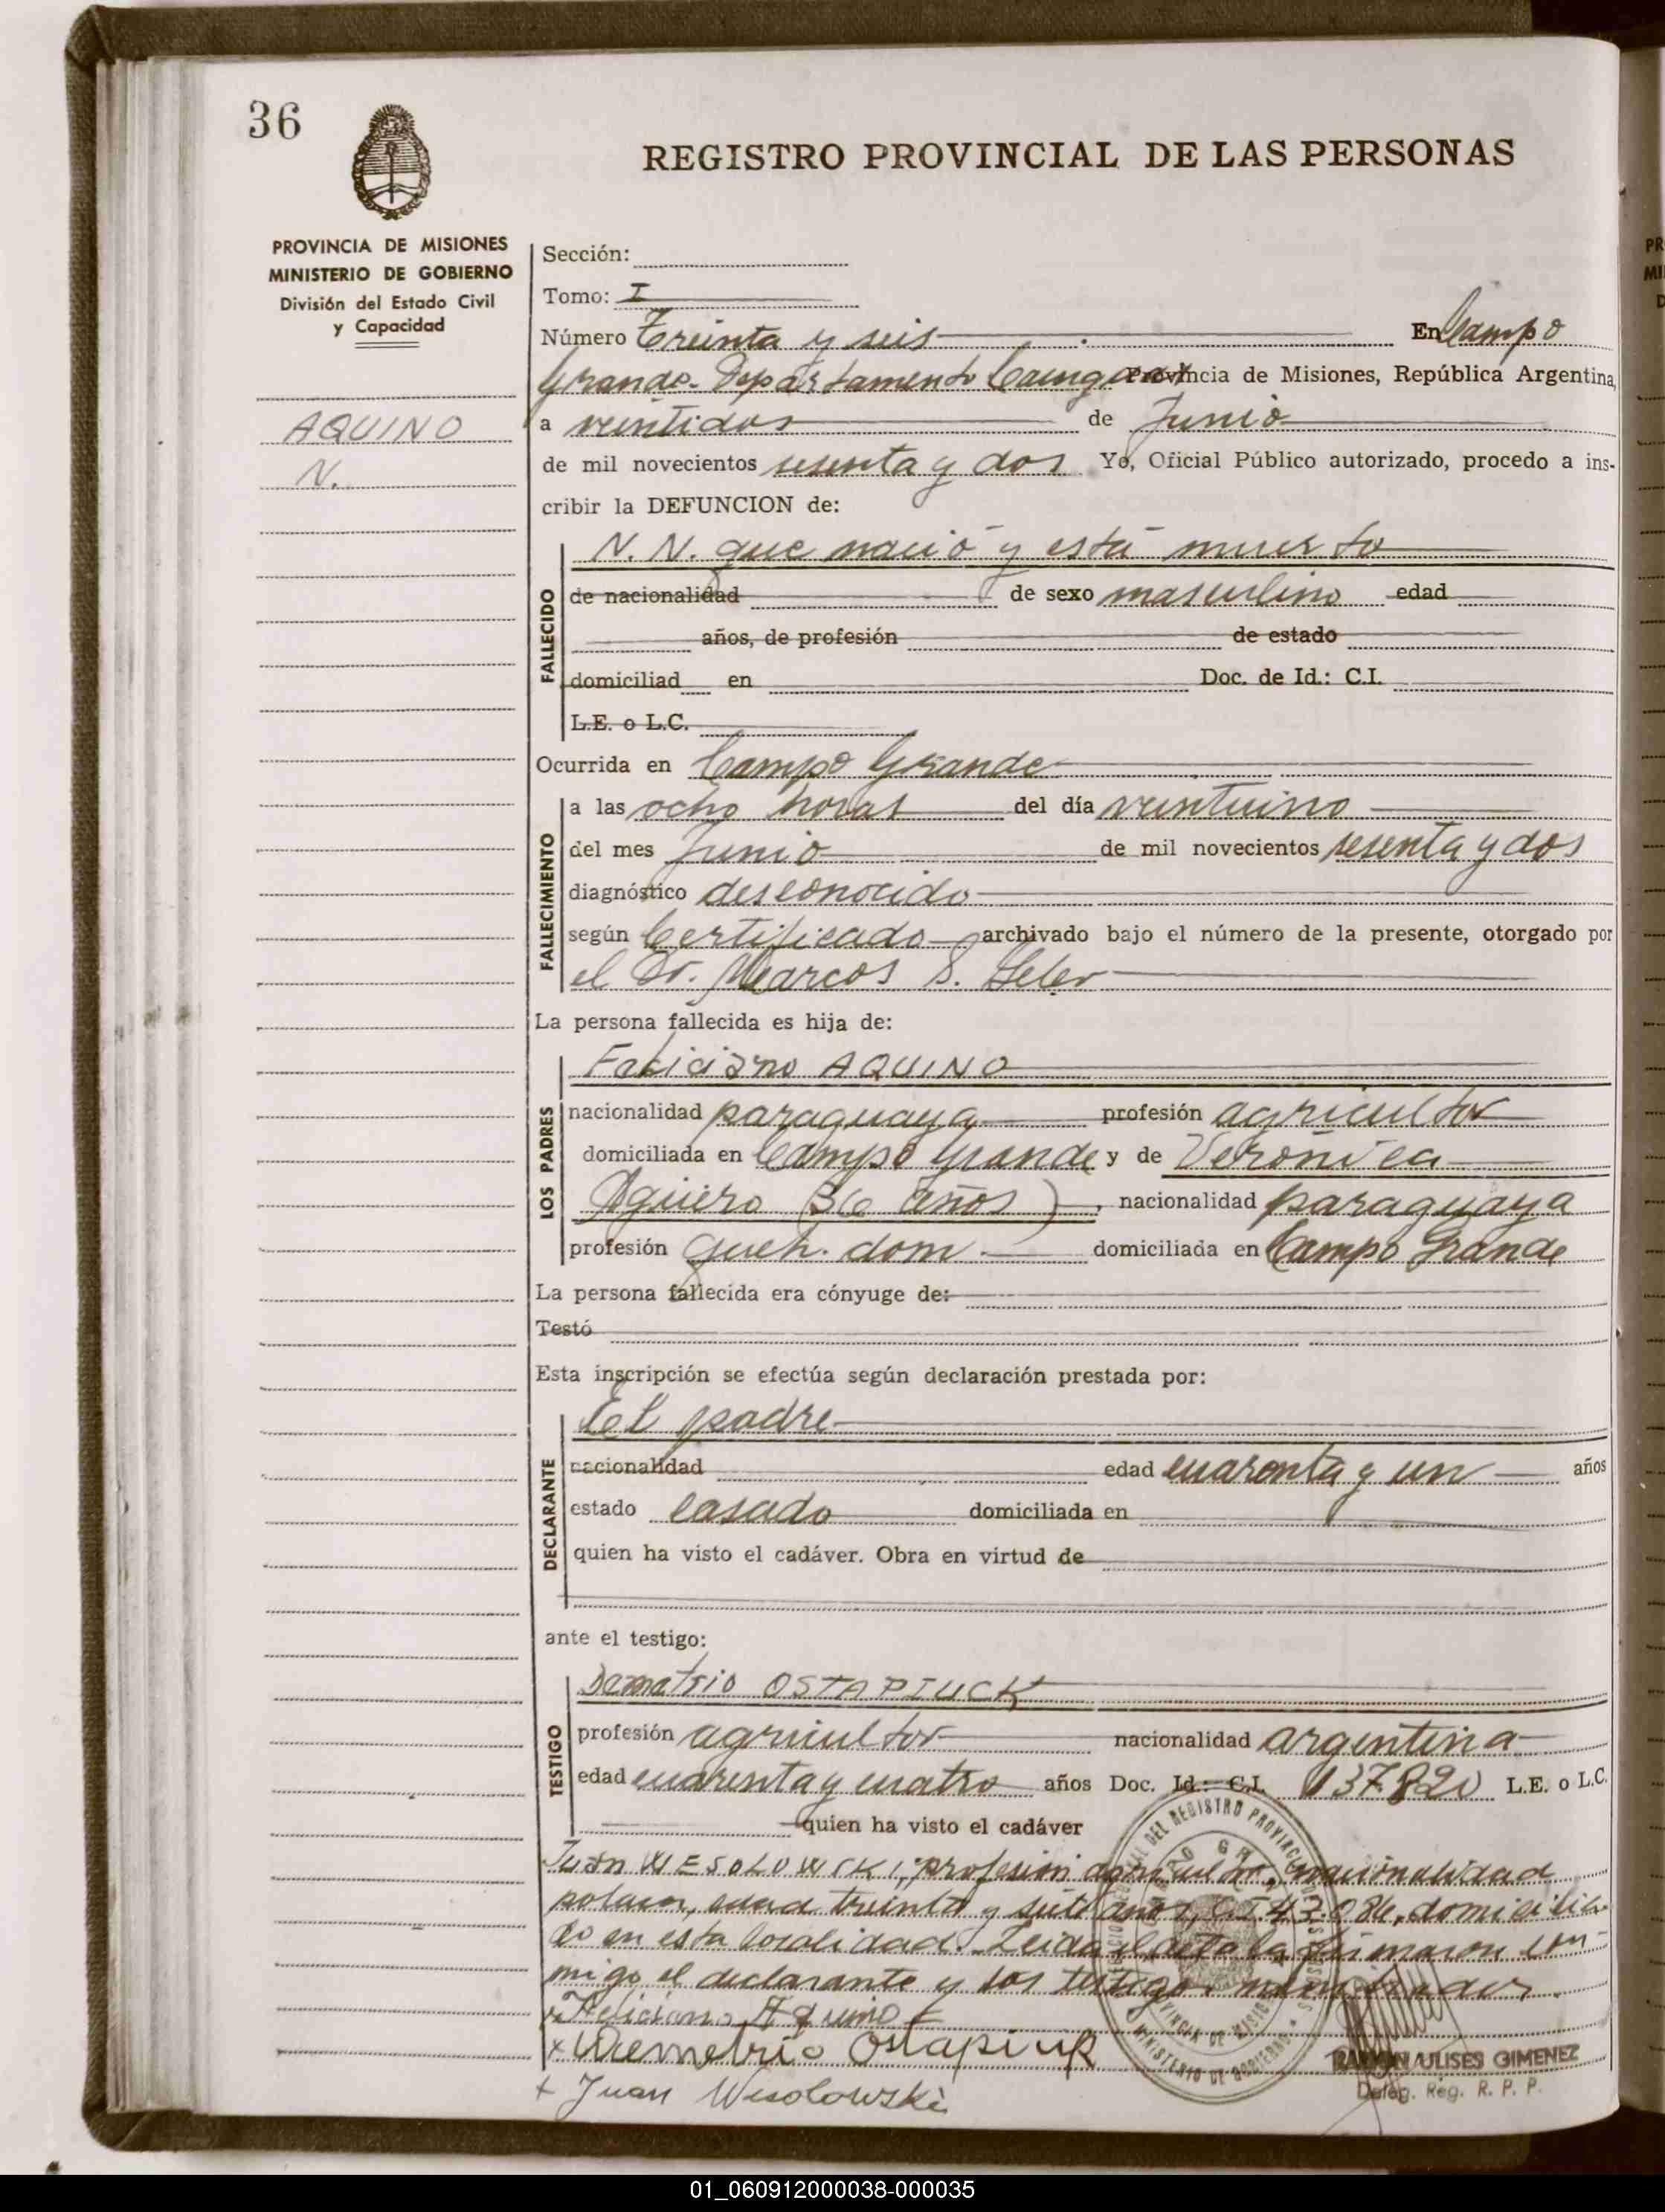 36
REGISTRO PROVINCIAL DE LAS PERSONAS
PROVINCIA DE MISIONES
MINISTERIO DE GOBIERNO
División del Estado Civil
y Capacidad
AQUINO
N.
Sección:
Tomo: I
Número Treinta y seis En Campo
Grande. Departamento Provincia de Misiones, República Argentina,
a veintidos de Junio
de mil novecientos sesenta y dos Yo, Oficial Público autorizado, procedo a ins-
cribir la DEFUNCION de:
FALLECIDO
N. N. que nació y está muerto
de nacionalidad de sexo masculino edad
años, de profesión de estado
domiciliad en Doc. de Id.: C.I.
L.E. o L.C.
Ocurrida en Campo Grande
FALLECIMIENTO
a las ocho horas del día veintiuno
del mes Junio de mil novecientos sesenta y dos
diagnóstico desconocido
según Certificado archivado bajo el número de la presente, otorgado por
el Dr. Marcos S.
La persona fallecida es hija de:
LOS PADRES
Feliciano AQUINO
nacionalidad paraguaya profesión agricultor
domiciliada en Campo Grande y de Verónica
Agüero (36 años), nacionalidad paraguaya
profesión queh. dom. domiciliada en Campo Grande
La persona fallecida era cónyuge de:
Testó
Esta inscripción se efectúa según declaración prestada por:
DECLARANTE
El padre
nacionalidad edad cuarenta y un años
estado casado domiciliada en
quien ha visto el cadáver. Obra en virtud de
ante el testigo:
TESTIGO
Demetrio OSTAPIUCK
profesión agricultor nacionalidad argentina
edad cuarenta y cuatro años Doc. Id.: C.I. 137.820 L.E. o L.C.
quien ha visto el cadáver
Juan WESOLOWSKI, profesión agricultor, nacionalidad
polaca, edad treinta y siete años, C.I. 43.086, domicilia-
do en esta localidad. Leida el acta la firmaron con-
migo el declarante y los testigos mencionados.
x Feliciano Aquino
x Demetrio Ostapiuk
+ Juan Wesolowski
RAMON ULISES GIMENEZ
Deleg. Reg. R. P. P.
01_060912000038-000035